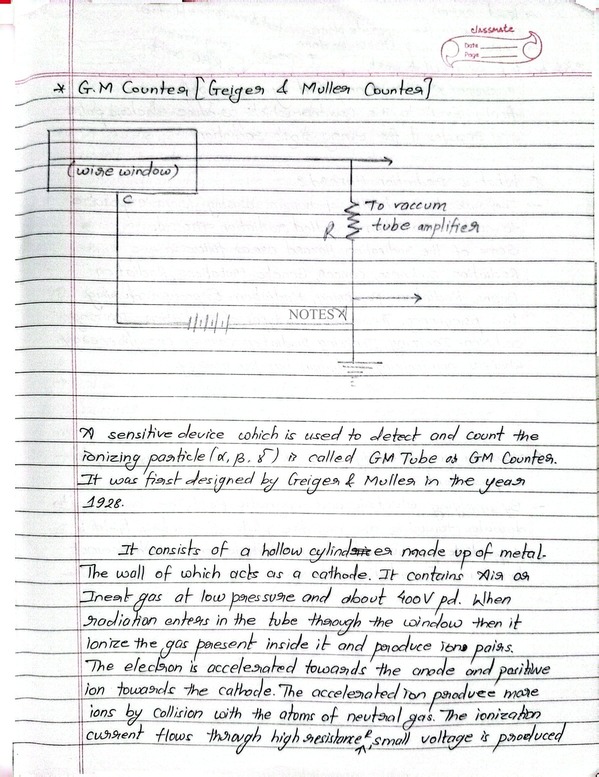 classmate
Date
Page
* G.M Counter [Geiger & Muller Counter]
(wire window)
C
To vaccum
R tube amplifier
NOTES
A sensitive device which is used to detect and count the
ionizing particle (α, β, γ) is called GM Tube or GM Counter.
It was first designed by Geiger & Muller in the year
1928.
It consists of a hollow cylinder made up of metal.
The wall of which acts as a cathode. It contains Air or
Inert gas at low pressure and about 400V pd. When
radiation enters in the tube through the window then it
ionize the gas present inside it and produce ions pairs.
The electron is accelerated towards the anode and positive
ion towards the cathode. The accelerated ion produce more
ions by collision with the atoms of neutral gas. The ionization
current flows through high resistance & small voltage is produced